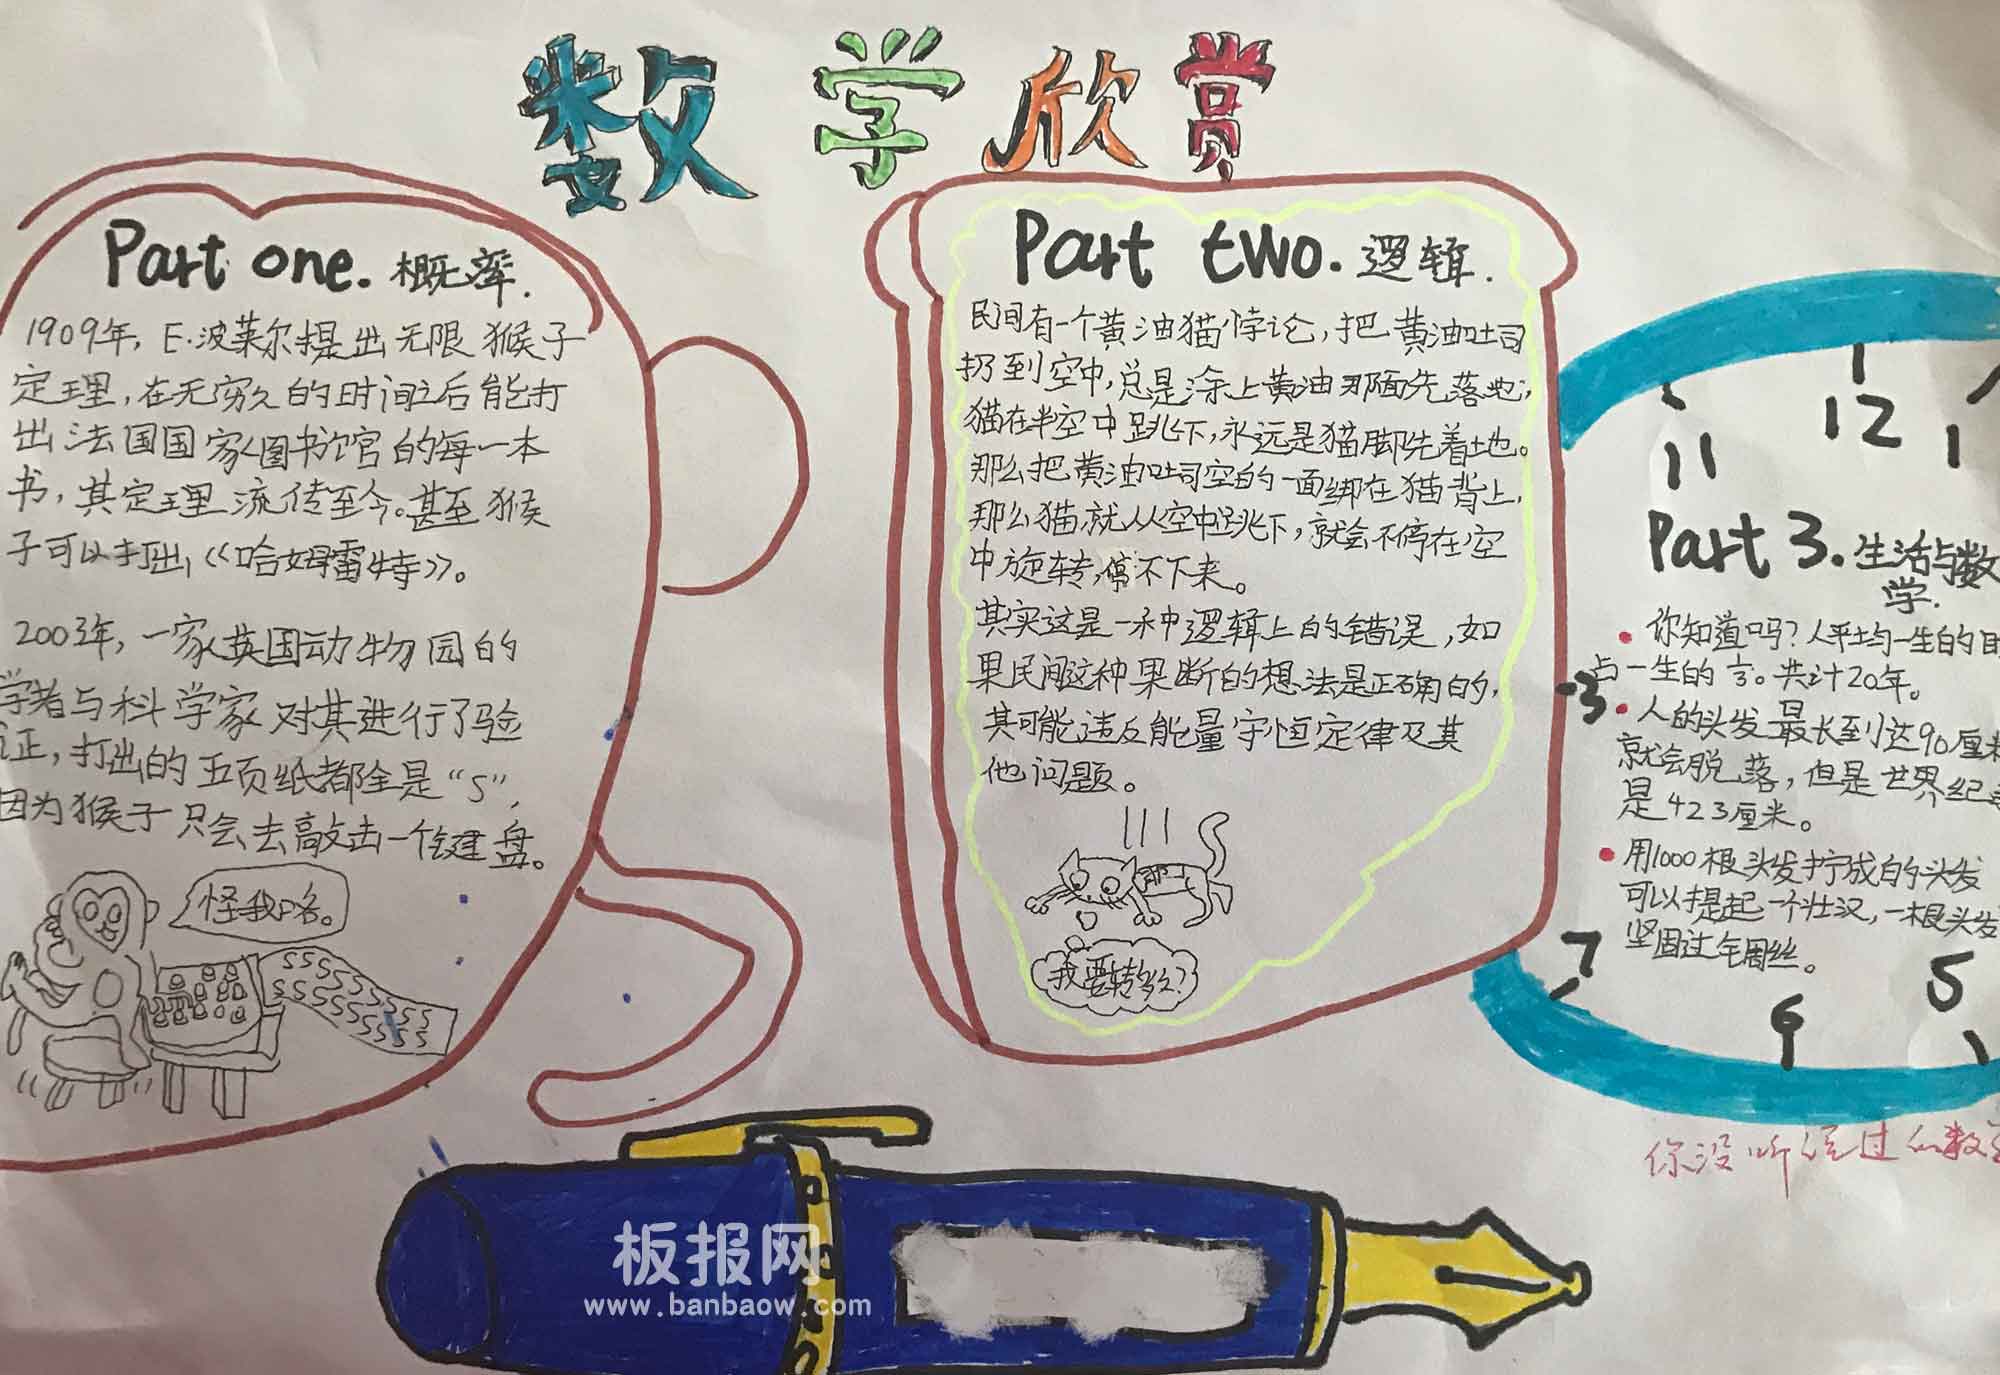 数学欣赏
Part one. 概率.
1909年, E·波莱尔提出无限猴子
定理,在无穷久的时间之后能打
出法国国家图书馆的每一本
书,其定理流传至今。甚至猴
子可以打出《哈姆雷特》。
2003年,一家英国动物园的
学者与科学家对其进行了验
证,打出的五页纸都全是“S”,
因为猴子只会去敲击一个键盘。
怪我咯。
SSSSS
SSSSSS
SSSSSS
SSSSS
Part two. 逻辑.
民间有一个黄油猫悖论,把黄油吐司
扔到空中,总是涂上黄油那面先落地;
猫在半空中跳下,永远是猫脚先着地。
那么把黄油吐司空的一面绑在猫背上,
那么猫就从空中跳下,就会不停在空
中旋转,停不下来。
其实这是一种逻辑上的错误,如
果民间这种果断的想法是正确的,
其可能违反能量守恒定律及其
他问题。
我要转多久?
11 12 1
Part 3. 生活与数
学.
你知道吗?人平均一生的时
占一生的⅓。共计20年。
3
人的头发最长到达90厘米
就会脱落,但是世界纪录
是423厘米。
用1000根头发拧成的头发
可以提起一个壮汉,一根头发
坚固过
7 6 5
你没听说过的数学
板报网
www.banbaow.com